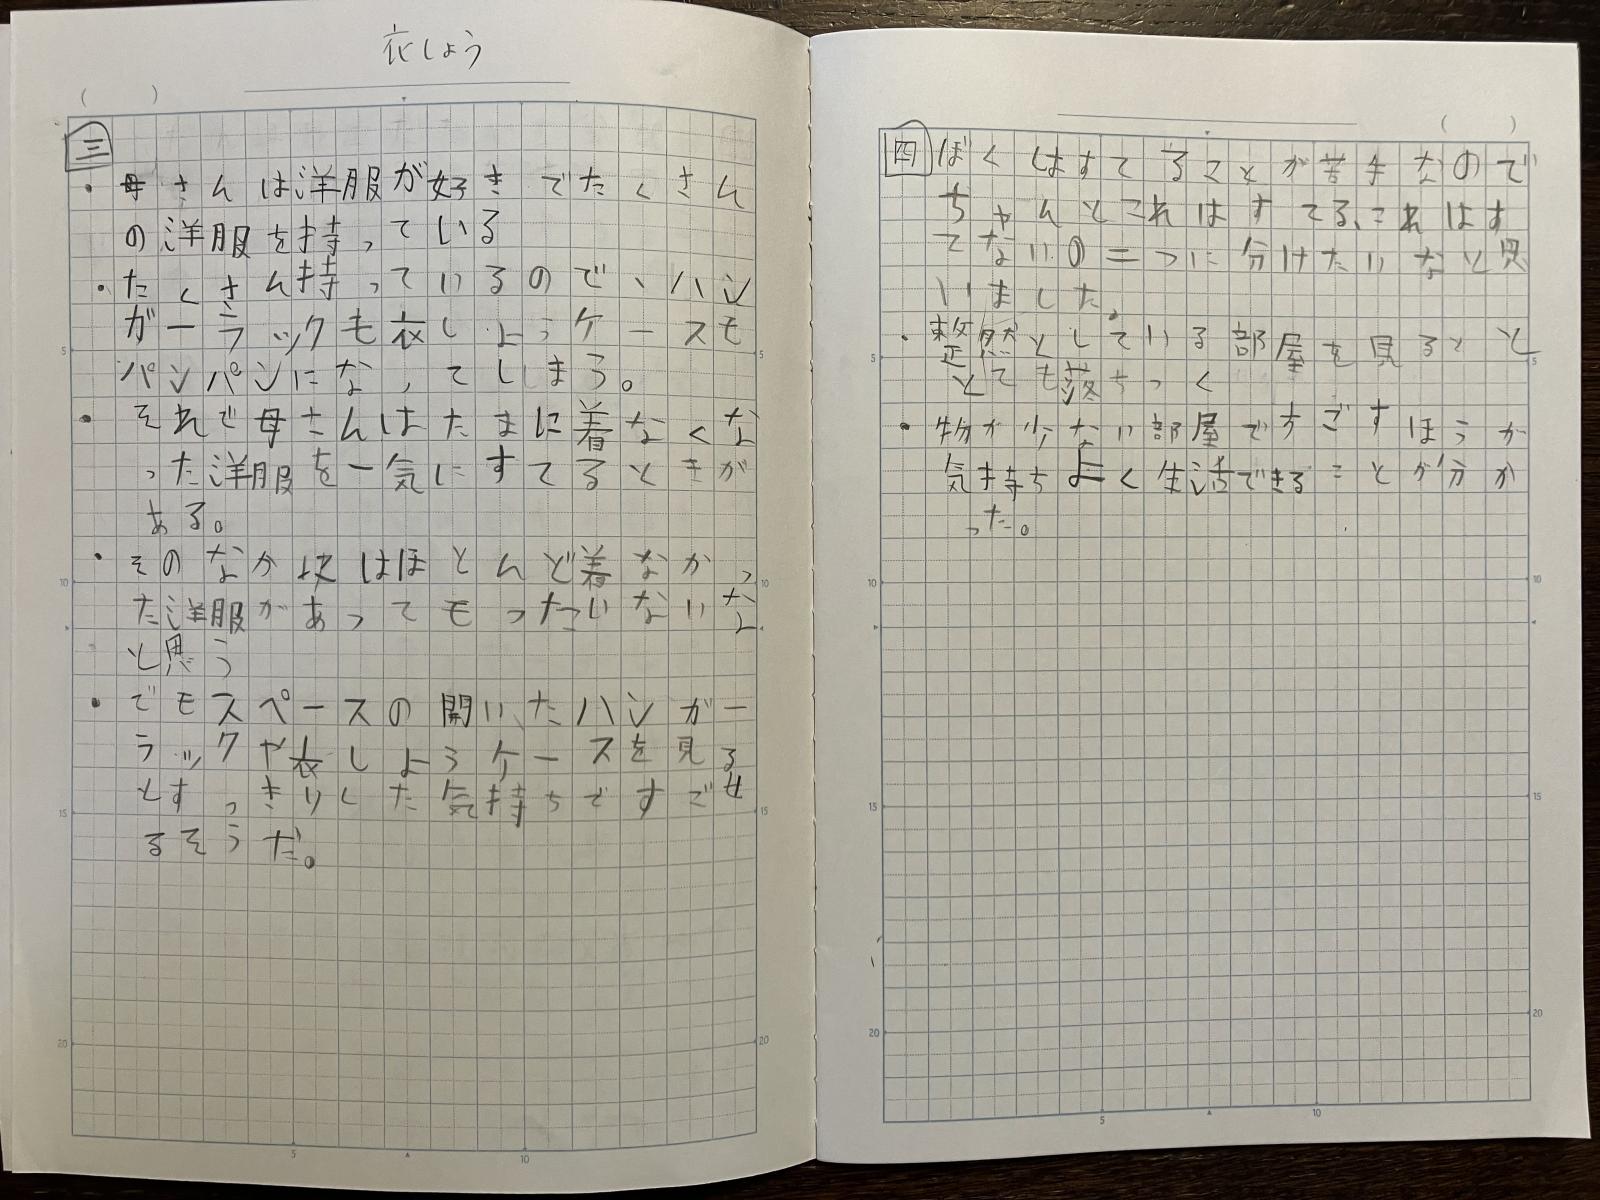 衣しょう
三
・母さんは洋服が好きでたくさん
の洋服を持っている
・たくさん持っているので、ハン
ガーラックも衣しょうケースも
パンパンになってしまう。
・それで母さんはたまに着なくな
った洋服を一気にすてるときが
ある。
・そのなかにはほとんど着なかっ
た洋服があってもったいないな
と思う
・でもスペースの開いたハンガー
ラックや衣しょうケースを見る
とすっきりした気持ちですごせ
るそうだ。
四 ぼくはすてることが苦手なので
ちゃんとこれはすてる、これはす
てないの二つに分けたいなと思
いました。
・整然としている部屋を見ると
とても落ちつく
・物が少ない部屋ですごすほうが
気持ちよく生活できることが分か
った。
5
10
15
20
5
10
15
20
5
10
5
10
15
20
5
10
15
20
5
10